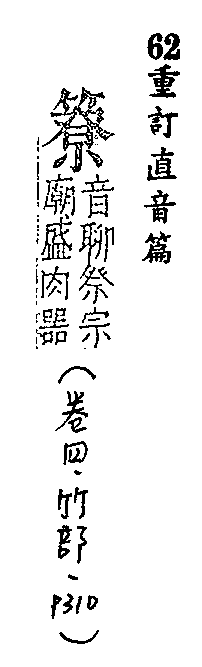 62重訂直音篇
音聊祭宗
廟盛肉器
(卷四、竹部、P310)